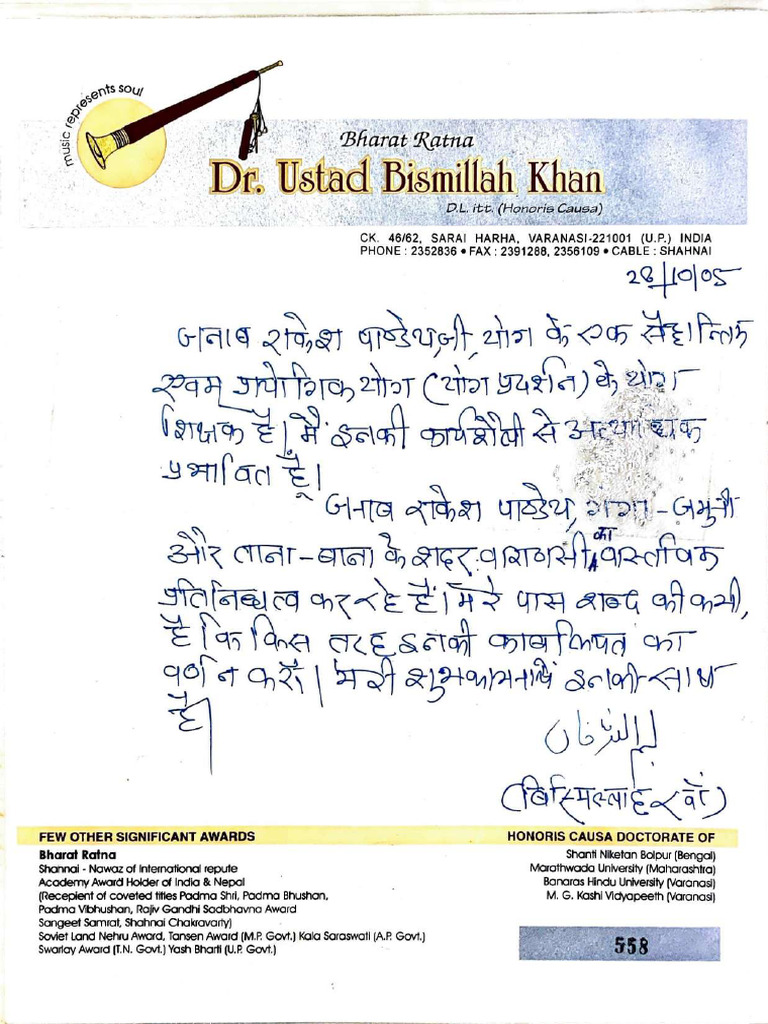 music represents soul
Bharat Ratna
Dr. Ustad Bismillah Khan
D.L. itt. (Honoris Causa)
CK. 46/62, SARAI HARHA, VARANASI-221001 (U.P.) INDIA
PHONE : 2352836 • FAX : 2391288, 2356109 • CABLE : SHAHNAI
28/10/05
जनाब राकेश पाण्डेय,जी, योग के एक सैद्धान्तिक
एवम प्रायोगिक योग (योग प्रदर्शन) के योग
शिक्षक है। मैं इनकी कार्यशैली से
प्रभावित हूँ।
जनाब राकेश पाण्डेय, गंगा - जमुनी
और ताना - बाना के शहर वाराणसी का वास्तविक
प्रतिनिधत्व कर रहे हैं। मेरे पास शब्द की कमी,
है कि किस तरह इनकी काबलियत का
वर्णन करूँ। मेरी शुभकामनायें इनकी साथ
है।
(बिस्मिल्लाह खाँ)
FEW OTHER SIGNIFICANT AWARDS
Bharat Ratna
Shannai - Nawaz of International repute
Academy Award Holder of India & Nepal
(Recepient of coveted titles Padma Shri, Padma Bhushan,
Padma Vibhushan, Rajiv Gandhi Sadbhavna Award
Sangeet Samrat, Shahnai Chakravarty)
Soviet Land Nehru Award, Tansen Award (M.P. Govt.) Kala Saraswati (A.P. Govt.)
Swarlay Award (T.N. Govt.) Yash Bharti (U.P. Govt.)
HONORIS CAUSA DOCTORATE OF
Shanti Niketan Bolpur (Bengal)
Marathwada University (Maharashtra)
Banaras Hindu University (Varanasi)
M. G. Kashi Vidyapeeth (Varanasi)
558